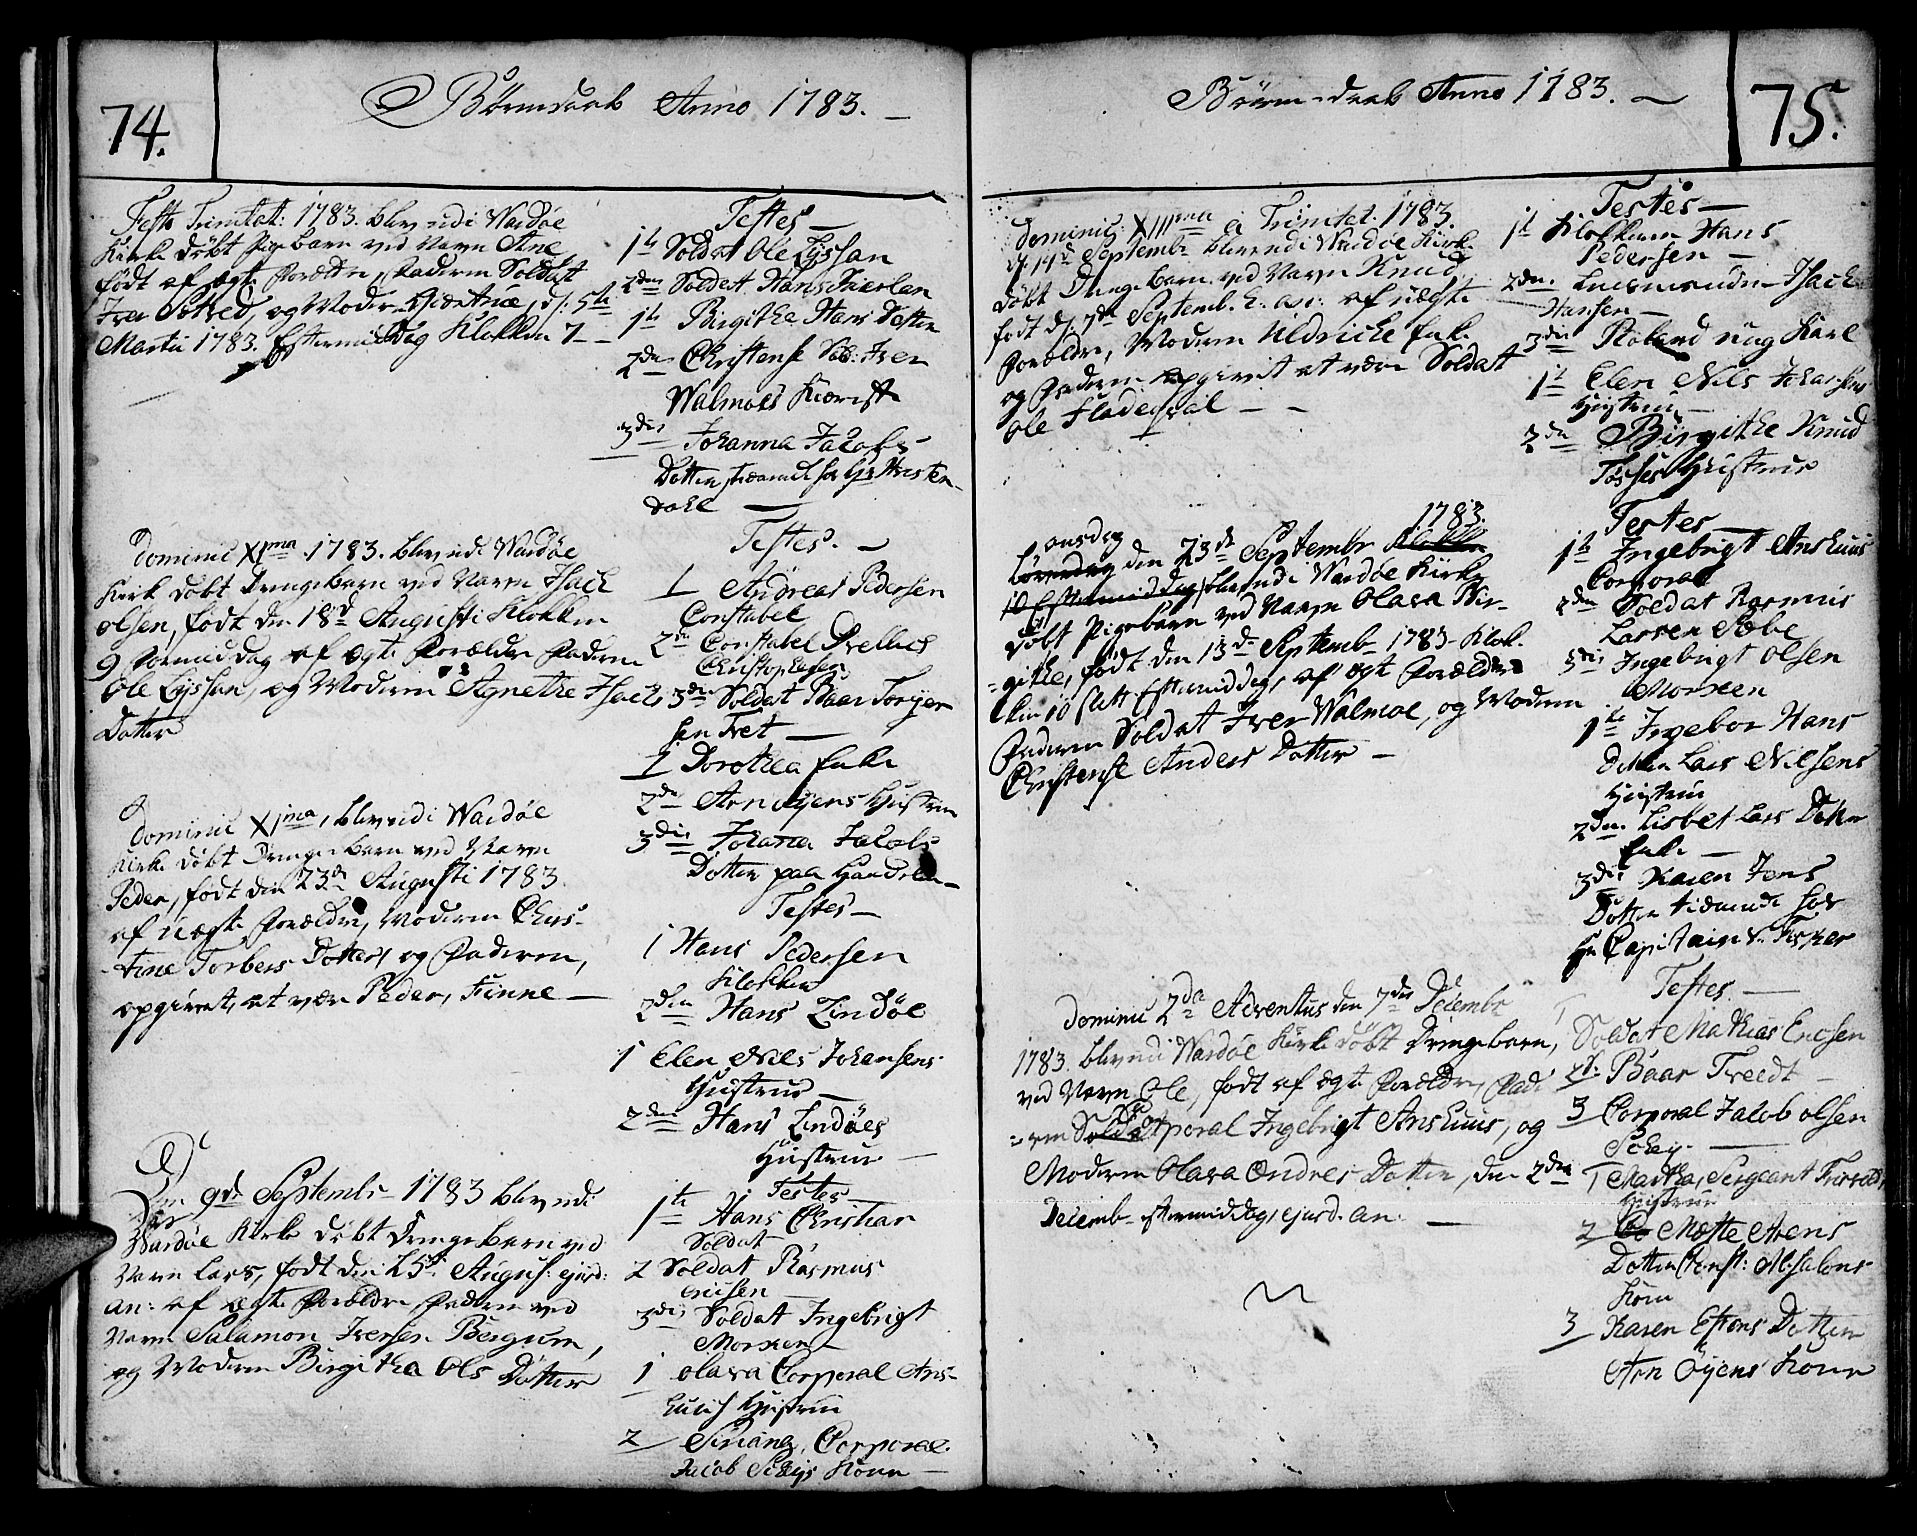 74.
Börnedaab Anno 1783.
Festo Trinitat: 1783. blev udi Wardöe
Kirke döbt Pigebarn ved Navn Ane
födt af ægte Forældre, Faderen Soldat
Iver Sætred, og Moder Beatrice, d: 5te
Martii 1783. Eftermiddag Klokken 7
Testes
1te Soldat Ole Lyssan
2den Soldat Hans Kierlan
1te Birgithe Hans Dotter
2den Christense Sol: Iver
Walmoes Kiereste
3die Johanna Jacobs
Dotter tienende hos Hr Kristen
Dahl
Dominic XIma 1783. blev udi Wardöe
Kirke döbt Drengebarn ved Navn Isach
Olsen, födt den 18de Augusti Klokken
9 Formiddag af ægte Forældre Faderen
Ole Lyssan, og Moderen Agnethe Isachs
Dotter
Testes.
1 Andreas Pedersen
Constabel
2den Constabel Drellius
Christophersen
3die Soldat Baar Torger
sen Tret
1 Dorothea Enke
2den Arn Öyens Hustrue
3die Johana Jacobs
Dotter paa Handelen
Dominic XIma, blev udi Wardöe
Kirke döbt Drengebarn ved Navn
Peder, födt den 23de Augusti 1783.
af uægte Forældre, Moderen Chris-
tine Torbers Dotter, og Faderen,
opgivet, at være Peder, Finne
Testes
1 Hans Pedersen
Klokker
2den Hans Lindöe
1 Elen Nils Johansens
Hustrue
2den Hans Lindöes
Hustrue
Den 9de Septembr 1783 blev udi
Wardöe Kirke döbt Drengebarn ved
Navn Lars, födt den 25de August: ejusd:
an: af ægte Forældre Faderen ved
Navn Salamon Iversen Bergum,
og Moderen Birgitha Ols Dotter
Testes
1te Hans Christian
Soldat
2 Soldat Rasmus
Ericsen
3die Soldat Ingebrigt
Morken
1 Olava Corporal Ans-
huus Hustrue
2 Siriana, Corporal
Jacob Scheys Kone
75.
Börnedaab Anno 1783.
Dominic: XIIIma a Trinitat. 1783.
d. 14de Septembr blev udi Wardöe Kirke
döbt Drengebarn ved Navn Knud
födt d: 7de Septemb. h: an: af uægte
Forældre, Moderen Uldriche Enke
og Faderen opgivet at være Soldat
Ole Fladeqval
Testes
1te Klokkeren Hans
Pedersen
2den Lænsmanden Isach
Hansen
3die Roland ung Karl
1te Elen Nils Johansens
Hustrue
2den Birgithe Knud
Tös Hustrue
onsdag 1783.
Löverdag den 23de Septembr Klokken
10 Eftermiddag, blev udi Wardöe Kirke
döbt Pigebarn ved Navn Olava Bir-
githe, födt den 13de Septemb 1783 Klok-
ken 10 slett Eftermiddag, af ægte Forældre
Faderen Soldat Iver Walmoe, og Moderen
Christense Anders Dotter
Testes
1te Ingebrigt Anshuus
Corporal
2den Soldat Rasmus
Larsen Sæbe
3die Ingebrigt Olsen
Morken
1te Ingebor Hans
Dotter Lars Nilsens
Hustrue
2den Lisbet Lars Dotter
Enke
3die Karen Jens
Dotter tienende hos
Hr Capitain v. Fischer
Dominic 2da Adventus den 7de Decembr
1783. blev udi Wardöe Kirke döbt Drengebarn,
ved Navn Ole, födt af ægte Forældre, Fad-
eren Corporal Ingebrigt Anshuus, og
Moderen Olava Endres Dotter, den 2den
Decemb. eftermiddag, ejusd. an:
Testes
1 Soldat Mathias Ericsen
2d: Baar Treedt
3 Corporal Jacob Olsen
Schey
1 Martha, Sergeant
Hustrue
2 Mætte Arens
Dotter Const: Absalons
Kone
3 Karen Estens Dotter
Arn Öyens Kone